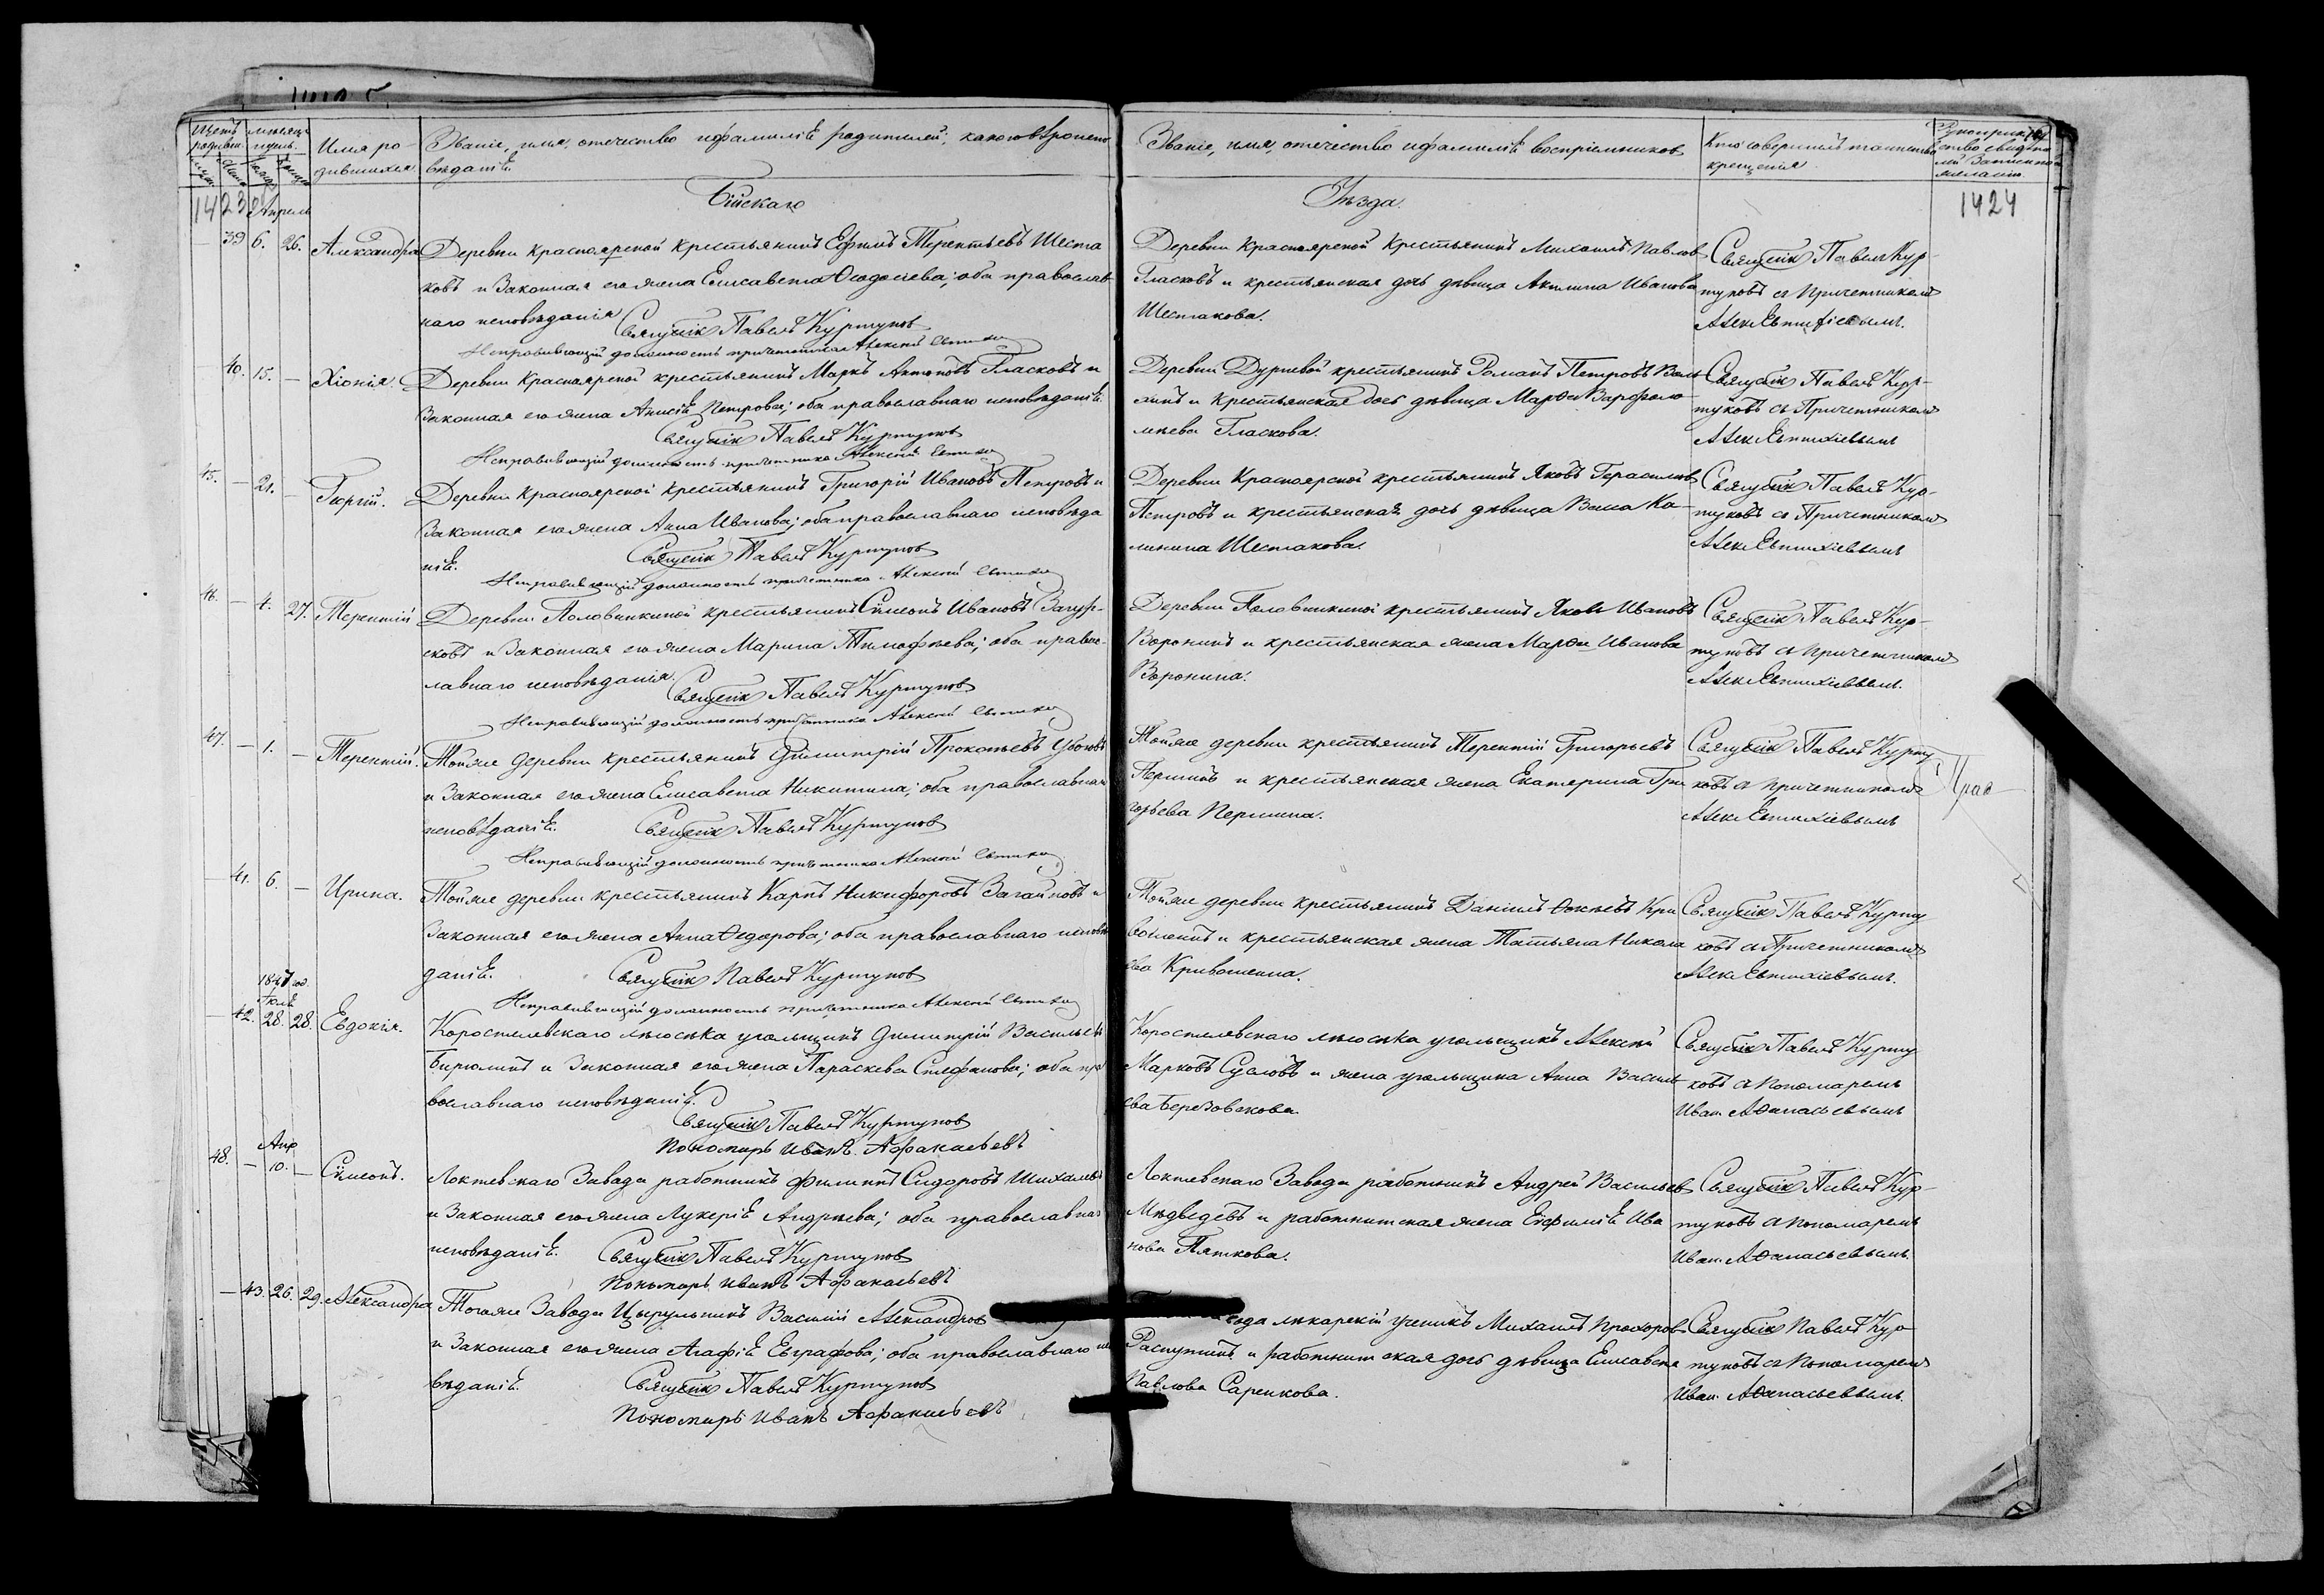 Имя ро-
дившихся.
Званіе, имя, отечество и фамилія родителей, и какого вѣроиспо-
вѣданія.
Званіе, имя, отечество и фамилія воспріемниковъ
Кто совершилъ таинство
крещенія.
1423 Апрель
Бійскаго
Уѣзда.
1424
39 6. 26. Александра
Деревни Красноярской крестьянинъ Ефимъ Терентьевъ Шеста
ковъ и Законная его жена Елисавета Ѳеодосіева; оба православ
наго исповѣданія
Священникъ Павелъ Куртуковъ
Исправляющій должность причетника Алексей
Деревни Красноярской Крестьянинъ Михаилъ Павловъ
Гласковъ и крестьянская дочь дѣвица Акилина Иванова
Шестакова.
Священникъ Павелъ Кур-
туковъ съ Причетникомъ
Алек. Евтихіевымъ.
40. 15. — Хіонія.
Деревни Красноярской крестьянинъ Маркъ Антоновъ Гласковъ и
Законная его жена Анисія Петрова; оба православнаго исповѣданія.
Священникъ Павелъ Куртуковъ
Исправляющій должность причетника Алексей
Деревни Дурневой крестьянинъ Романъ Петровъ
и Крестьянская дочь дѣвица Марѳа Варфоло-
мѣева Гласкова.
Священникъ Павелъ Кур-
туковъ съ Причетникомъ
Алек. Евтихіевымъ
45. — 21. — Георгій.
Деревни Красноярской крестьянинъ Григорій Ивановъ Петровъ и
Законная его жена Анна Иванова; оба православнаго исповѣда
нія.
Священникъ Павелъ Куртуковъ
Исправляющій должность причетника Алексей
Деревни Красноярской крестьянинъ Яковъ Герасимовъ
Петровъ и крестьянская дочь дѣвица Васса Ка-
линина Шестакова.
Священникъ Павелъ Кур-
туковъ съ Причетникомъ
Алек. Евтихіевымъ
46. — 4. 27. Терентій
Деревни Половинкиной крестьянинъ Сѵмеонъ Ивановъ
и Законная его жена Марина Тимофѣева; оба правос-
лавнаго исповѣданія.
Священникъ Павелъ Куртуковъ
Исправляющій должность причетника Алексей
Деревни Половинкиной крестьянинъ Яковъ Ивановъ
Воронинъ и крестьянская жена Марѳа Иванова
Воронина.
Священникъ Павелъ Кур-
туковъ съ причетникомъ
Алек. Евтихіевымъ.
47. — 1. — Терентій.
Тойже деревни крестьянинъ Димитрій Прокопьевъ
и Законная его жена Елисавета Никитина; оба православнаго
исповѣданія.
Священникъ Павелъ Куртуковъ
Исправляющій должность причетника Алексей
Тойже деревни крестьянинъ Терентій Григорьевъ
Першинъ и крестьянская жена Екатерина Гри
горьева Першина.
Священникъ Павелъ Курту
ковъ съ причетникомъ
Алек. Евтихіевымъ
— 41. 6. — Ирина.
Тойже деревни крестьянинъ Карпъ Никифоровъ Загайновъ и
Законная его жена Анна Ѳедорова; оба православнаго исповѣ
данія.
Священникъ Павелъ Куртуковъ
Исправляющій должность причетника Алексей
Тойже деревни крестьянинъ Даніилъ Ѳокѣевъ Кри
вошеинъ и крестьянская жена Татьяна Никола
ева Кривошеина.
Священникъ Павелъ Курту
ковъ съ Причетникомъ
Алек. Евтихіевымъ.
1847 год.
42. 28. 28. Евдокія.
Коростелевскаго лѣсосѣка угольщикъ Димитрій Васильевъ
Бирюлинъ и Законная его жена Параскева Стефанова; оба пра
вославнаго исповѣданія.
Священникъ Павелъ Куртуковъ
Пономарь Иванъ Афанасьевъ
Коростелевскаго лѣсосѣка угольщикъ Алексѣй
Марковъ Сусловъ и жена угольщика Анна Василь
ева Березовскова.
Священникъ Павелъ Курту
ковъ съ Пономаремъ
Иван. Аѳанасьевымъ
Апр
48. — 10. — Сѵмеонъ.
Локтевскаго Завода работникъ Филиппъ Сидоровъ
и Законная его жена Лукерія Андрѣева; оба православнаго
исповѣданія.
Священникъ Павелъ Куртуковъ
Пономарь Иванъ Афанасьевъ
Локтевскаго Завода работникъ Андрей Васильевъ
Мѣдведевъ и работничская жена Евфимія Ива
нова Пяткова.
Священникъ Павелъ Кур-
туковъ съ пономаремъ
Иван. Аѳанасьевымъ.
— 43. 26. 29. Александра
Тогоже Завода Цырульникъ Василій Александровъ
и Законная его жена Агафія Евграфова; оба православнаго испо
вѣданія.
Священникъ Павелъ Куртуковъ
Пономарь Иванъ Афанасьевъ
вода лѣкарскій ученикъ Михаилъ Прохоровъ
Распутинъ и работничская дочь дѣвица Елисавета
Павлова Саренкова.
Священникъ Павелъ Кур
туковъ съ Пономаремъ
Иван. Аѳанасьевымъ.